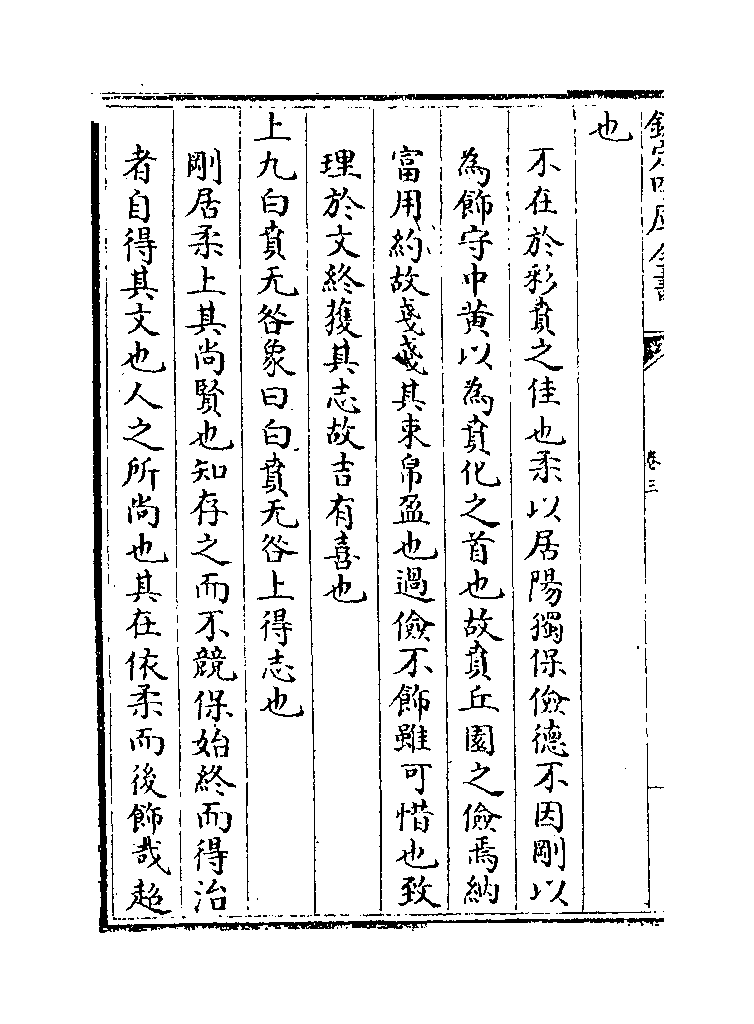 欽定四庫全書
卷三
也
不在於彩賁之佳也柔以居陽獨保儉德不因剛以
為飾守中黄以為賁化之首也故賁丘園之儉焉納
富用約故戔戔其束帛盈也過儉不飾雖可惜也致
理於文終獲其志故吉有喜也
上九白賁无咎象曰白賁无咎上得志也
剛居柔上其尚賢也知存之而不競保始終而得治
者自得其文也人之所尚也其在依柔而後飾哉超